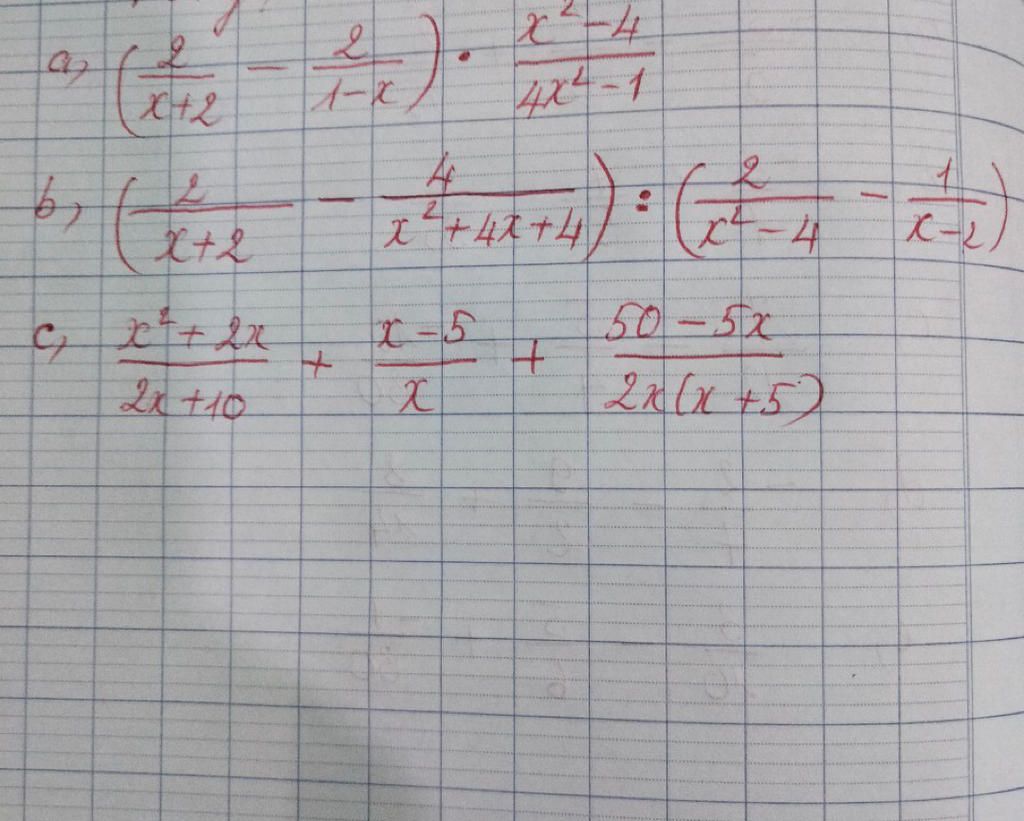 a, (2/(x+2) - 2/(1-x)) · (x² - 4)/(4x² - 1)
b, (2/(x+2) - 4/(x² + 4x + 4)) : (2/(x² - 4) - 1/(x-2))
c, (x² + 2x)/(2x + 10) + (x - 5)/x + (50 - 5x)/(2x(x + 5))